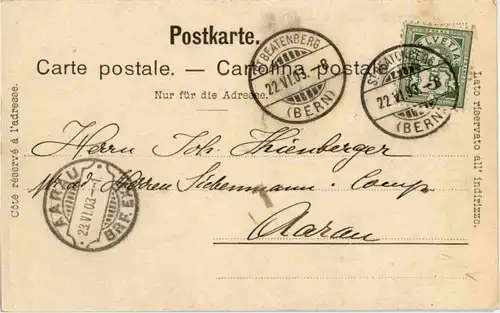 Postkarte.
Carte postale. — Cartolina postale.
Nur für die Adresse.
Côté réservé à l'adresse.
Lato riservato all' indirizzo.
ST. BEATENBERG
22.VI.03.-8
(BERN)
HELVETIA
5
ST. BEATENBERG
22.VI.03.
(BERN)
Herrn Joh.
Herren Siebenmann Comp.
Aarau
AARAU
23.VI.03-
BRF. EX